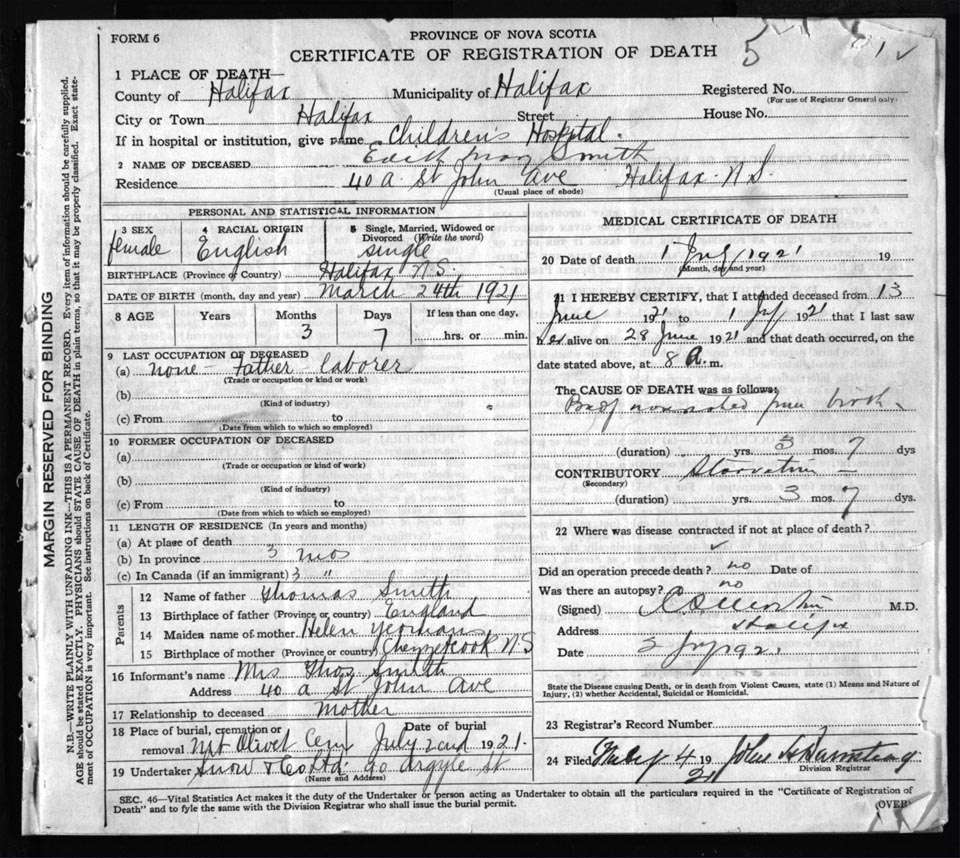 FORM 6
PROVINCE OF NOVA SCOTIA
CERTIFICATE OF REGISTRATION OF DEATH 5 1
1 PLACE OF DEATH—
County of Halifax Municipality of Halifax Registered No.
(For use of Registrar General only)
City or Town Halifax Street House No.
If in hospital or institution, give name Children's Hospital.
2 NAME OF DECEASED May Smith
Residence 40 a St John Ave Halifax N.S.
(Usual place of abode)
PERSONAL AND STATISTICAL INFORMATION
3 SEX female 4 RACIAL ORIGIN English 5 Single, Married, Widowed or Divorced (Write the word) single
BIRTHPLACE (Province or Country) Halifax N.S.
DATE OF BIRTH (month, day and year) March 24th 1921
8 AGE Years Months 3 Days 7 If less than one day, hrs. or min.
9 LAST OCCUPATION OF DECEASED
(a) none - Father - laborer
(Trade or occupation or kind or work)
(b)
(Kind of industry)
(c) From to
(Date from which to which so employed)
10 FORMER OCCUPATION OF DECEASED
(a)
(Trade or occupation or kind of work)
(b)
(Kind of industry)
(c) From to
(Date from which to which so employed)
11 LENGTH OF RESIDENCE (In years and months)
(a) At place of death
(b) In province 3 mos
(c) In Canada (if an immigrant) 3 "
Parents
12 Name of father Thomas Smith
13 Birthplace of father (Province or country) England
14 Maiden name of mother Helen
15 Birthplace of mother (Province or country) Chezzetcook N S
16 Informant's name Mrs Thos Smith
Address 40 a St John Ave
17 Relationship to deceased mother
18 Place of burial, cremation or removal Mt Olivet Cem Date of burial July 2nd 1921.
19 Undertaker Snow & Co Ltd 90 Argyle St
(Name and Address)
MEDICAL CERTIFICATE OF DEATH
20 Date of death 1 July 1921 19
(Month, day and year)
21 I HEREBY CERTIFY, that I attended deceased from 13
June 1921 to 1 July 1921 that I last saw
her alive on 28 June 1921 and that death occurred, on the
date stated above, at 8 a. m.
The CAUSE OF DEATH was as follows:
birth -
(duration) yrs. 3 mos. 7 dys
CONTRIBUTORY Starvation -
(Secondary)
(duration) yrs. 3 mos. 7 dys.
22 Where was disease contracted if not at place of death?
Did an operation precede death? no Date of
Was there an autopsy? no
(Signed) M.D.
Address Halifax
Date 2 July 1921
State the Disease causing Death, or in death from Violent Causes, state (1) Means and Nature of
Injury, (2) whether Accidental, Suicidal or Homicidal.
23 Registrar's Record Number
24 Filed July 4 1921 John
Division Registrar
SEC. 46—Vital Statistics Act makes it the duty of the Undertaker or person acting as Undertaker to obtain all the particulars required in the "Certificate of Registration of
Death" and to fyle the same with the Division Registrar who shall issue the burial permit.
(OVER)
MARGIN RESERVED FOR BINDING
N.B.—WRITE PLAINLY WITH UNFADING INK—THIS IS A PERMANENT RECORD. Every item of information should be carefully supplied.
AGE should be stated EXACTLY. PHYSICIANS should STATE CAUSE OF DEATH in plain terms, so that it may be properly classified. Exact state-
ment of OCCUPATION is very important. See instructions on back of Certificate.